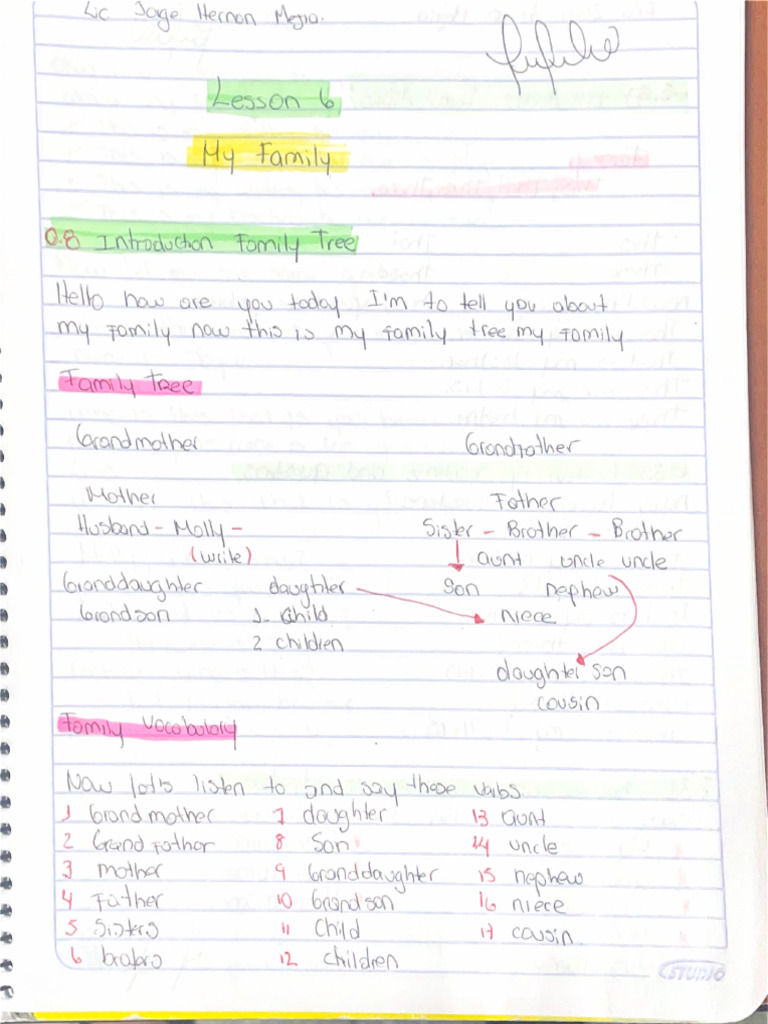 Lic Jorge Hernan Mejia.
Lesson 6
My Family
0.8 Introduction Family Tree
Hello how are you today I'm to tell you about
my family now this is my family tree my family
Family Tree
Grandmother Grandfather
Mother Father
Husband - Molly - Sister - Brother - Brother
(write) aunt uncle uncle
Granddaughter daughter son nephew
Grandson 1 child niece
2 children
daughter son
cousin
Family Vocabulary
Now let's listen to and say these
1 Grandmother 7 daughter 13 aunt
2 Grand Father 8 Son 14 uncle
3 mother 9 Granddaughter 15 nephew
4 Father 10 Grandson 16 niece
5 Sisters 11 Child 17 cousin
6 12 children
STUDIO